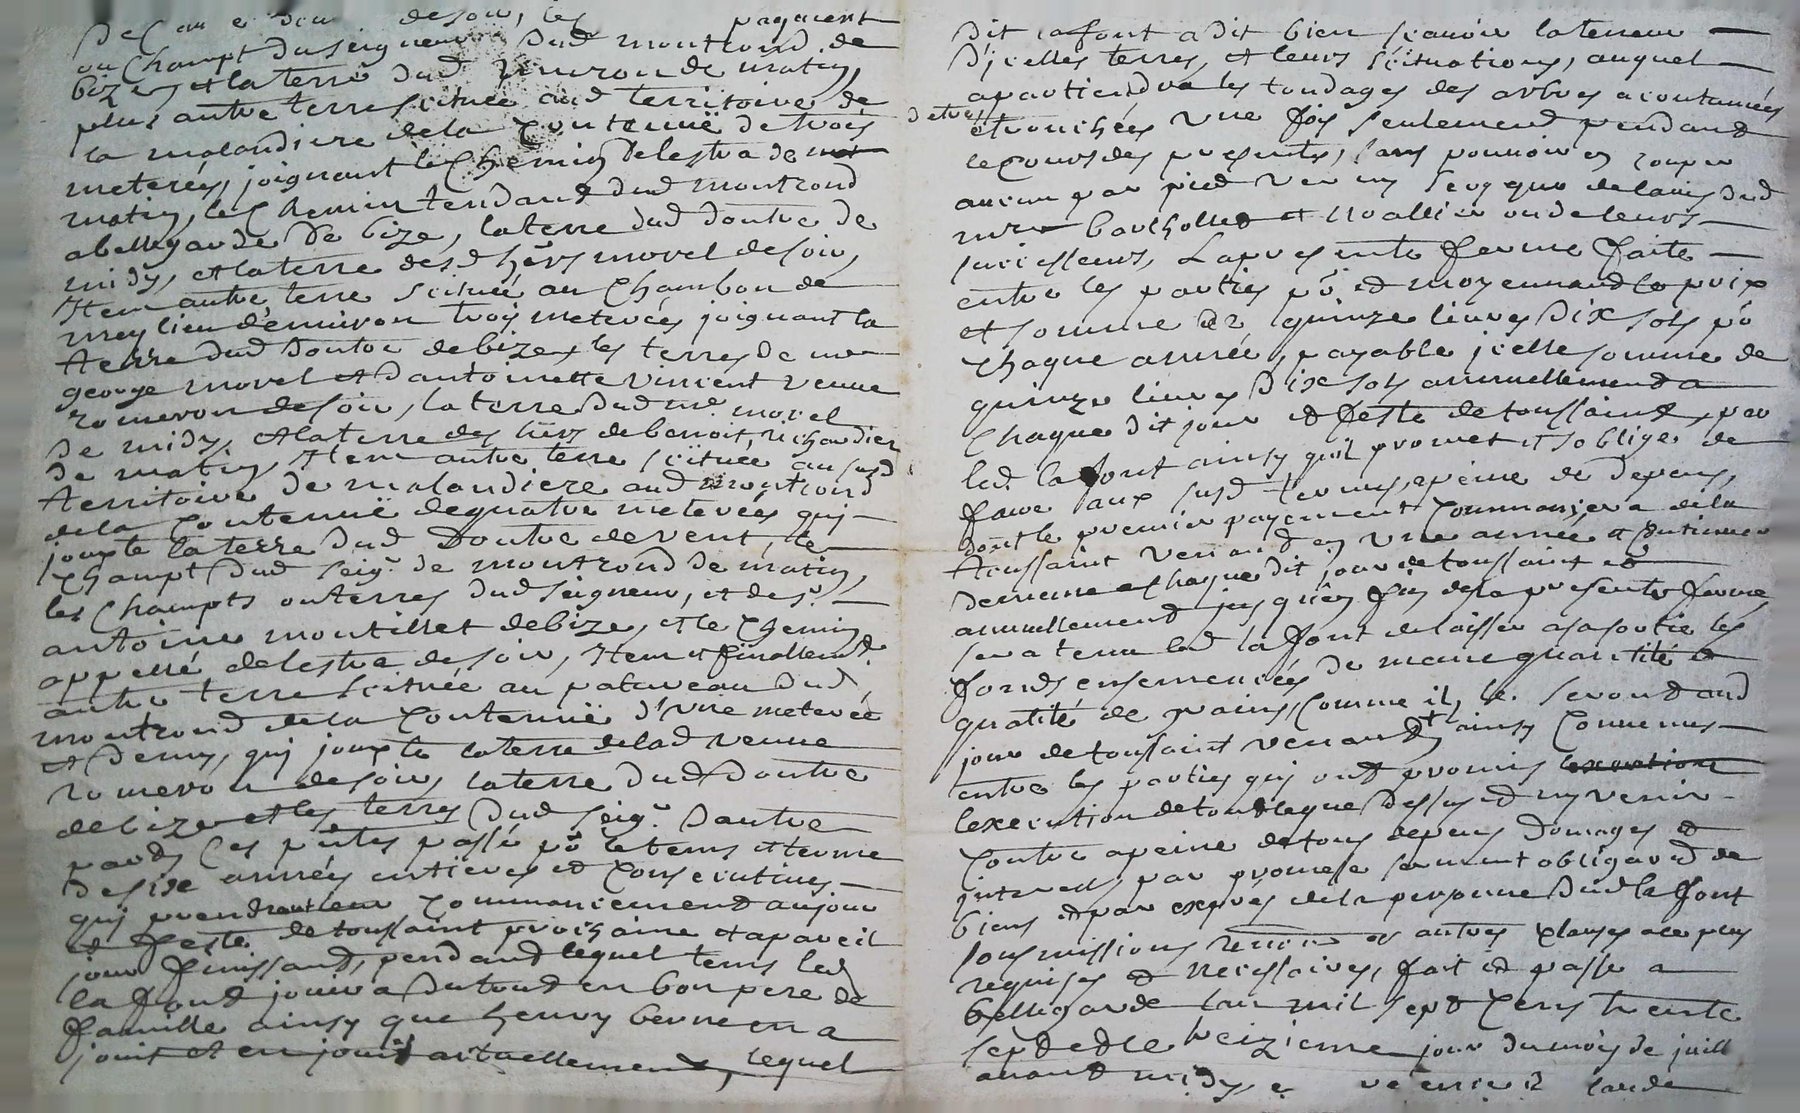 de soir, les pagnient
ou Champt du seigneur dud montrond de
bize et la terre dud de matin,
plus autre terre scituée aud territoire de
la malandiere de la Contenuë de trois
meterées, joignant le Chemin de lestra de
matin, le Chemin tendant dud montrond
a bellegarde de bize, la terre dud Doutre de
midy, et la terre desd hers morel de soir,
Item autre terre scituée au Chambon de
mey lieu denuiron trois meterées joignant la
terre dud Doutre de bize, les terres de me
george morel et dantoinette Vincent veuue
romeron de soir, la terre dud me morel
de midy, et la terre des hers de benoit richardier
de matin, Item autre terre scituée au susd
territoire de malandiere aud montrond
de la Contenuë de quatre meterées qui
jouxte la terre dud Doutre de vent, le
Champt dud seigr de montrond de matin,
les Champts ou terres dud seigneur, et de sr
antoine montillet de bize, et le Chemin
appellé de lestra de soir, Item et finallemt
autre terre scituée au pataveau dud
montrond de la Contenuë d'vne meterée
et demy, qui jouxte la terre de lad veuue
romeron de soir, la terre dud Doutre
de bize et les terres dud seigr Dautre
part, Ces pntes passé pr le tems et terme
de six années entieres et Consecutiues
qui prendront leur Commancement aujour
et feste de toussaint prochaine et a pareil
jour finissant, pendant lequel tems led
la font jouira du tout en bon pere de
famille ainsy que henry berne en a
jouit et en jouit actuellement, lequel
dit lafont a dit bien scauoir la teneur
d'jcelles terres, et leurs scituations, auquel
apartiendra les tondages des arbres acoutumées
detre etronchées vne fois seulement pendant
le Cours des presentes, sans pouuoir en couper
aucun par pied ver ny secq que de lauis dud
mre bartholley et noallier ou de leurs
successeurs, La presente ferme faite
entre les parties pr et moyennant le prix
et somme de quinze liures Dix sols pr
Chaque année, payable jcelle somme de
quinze liures Dix sols annuellement a
Chaque dit jour et feste de toussaint, par
led. la font ainsy qu'il promet et s'oblige de
faire aux susd termes, apeine de depens,
dont le premier payement Commancera de la
toussaint venant en vne année et Continuer
de meme a Chaque dit jour de toussaint et
annuellement jusqu'en fin de la presente ferme,
sera tenu led la font de laisser a sa sortie les
fonds ensemencées de meme quantité et
qualité de grains, Comme il, le seront aud
jour de toussaint venant, ainsy Conuenus
entre les parties qui ont promis
lexecution de tout ce que dessus et ny venir
Contre apeine de tous depens Domages et
interests, par promesse serment obligaon de
biens et par exprés de la personne dud la font
sousmissions renons et autres Clauses a ce plus
requises et necessaires, fait et passé a
bellegarde lan mil sept Cens trente
sept et le treizieme jour du mois de juill
auant midy